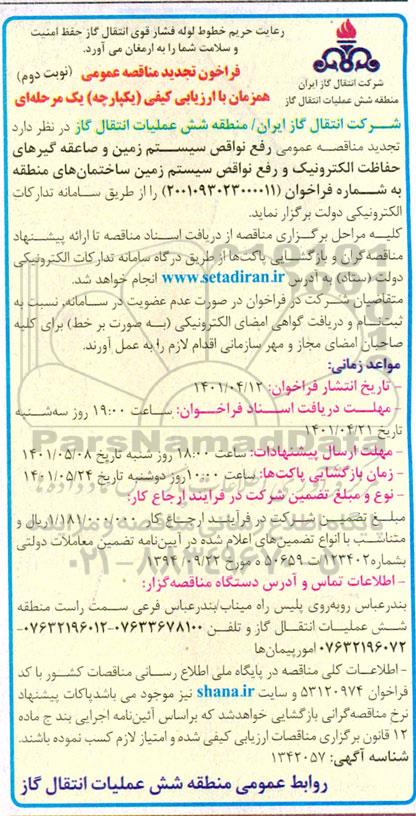 رعایت حریم خطوط لوله فشار قوی انتقال گاز حفظ امنیت
و سلامت شما را به ارمغان می آورد.
شرکت انتقال گاز ایران
منطقه شش عملیات انتقال گاز
فراخون تجدید مناقصه عمومی (نوبت دوم)
همزمان با ارزیابی کیفی (یکپارچه) یک مرحله‌ای
شرکت انتقال گاز ایران/ منطقه شش عملیات انتقال گاز در نظر دارد
تجدید مناقصه عمومی رفع نواقص سیستم زمین و صاعقه گیرهای
حفاظت الکترونیک و رفع نواقص سیستم زمین ساختمان‌های منطقه
به شماره فراخوان (۲۰۰۱۰۹۳۰۲۳۰۰۰۰۱۱) را از طریق سامانه تدارکات
الکترونیکی دولت برگزار نماید.
کلیه مراحل برگزاری مناقصه از دریافت اسناد مناقصه تا ارائه پیشنهاد
مناقصه‌گران و بازگشایی پاکت‌ها از طریق درگاه سامانه تدارکات الکترونیکی
دولت (ستاد) به آدرس www.setadiran.ir انجام خواهد شد.
متقاضیان شرکت در فراخوان در صورت عدم عضویت در سامانه، نسبت به
ثبت‌نام و دریافت گواهی امضای الکترونیکی (به صورت بر خط) برای کلیه
صاحبان امضای مجاز و مهر سازمانی اقدام لازم را به عمل آورند.
مواعد زمانی:
- تاریخ انتشار فراخوان: ۱۴۰۱/۰۴/۱۲
- مهلت دریافت اسناد فراخوان: ساعت ۱۹:۰۰ روز سه‌شنبه
تاریخ ۱۴۰۱/۰۴/۲۱
- مهلت ارسال پیشنهادات: ساعت ۱۸:۰۰ روز شنبه تاریخ ۱۴۰۱/۰۵/۰۸
- زمان بازگشایی پاکت‌ها: ساعت ۱۰:۰۰ روز دوشنبه تاریخ ۱۴۰۱/۰۵/۲۴
- نوع و مبلغ تضمین شرکت در فرآیند ارجاع کار:
مبلغ تضمین شرکت در فرآیند ارجاع کار ۱/۱۸۱/۰۰۰/۰۰۰ ریال و
متناسب با انواع تضمین‌های اعلام شده در آیین‌نامه تضمین معاملات دولتی
بشماره ۱۲۳۴۰۲/ت ۵۰۶۵۹ ه مورخ ۱۳۹۴/۰۹/۲۲
- اطلاعات تماس و آدرس دستگاه مناقصه‌گزار:
بندرعباس روبه‌روی پلیس راه میناب/بندرعباس فرعی سمت راست منطقه
شش عملیات انتقال گاز و تلفن ۰۷۶۳۳۶۷۸۱۰۰-۰۷۶۳۲۱۹۶۰۱۲-
۰۷۶۳۲۱۹۶۰۷۲ امورپیمان‌ها
- اطلاعات کلی مناقصه در پایگاه ملی اطلاع رسانی مناقصات کشور با کد
فراخوان ۵۳۱۲۰۹۷۴ و سایت shana.ir نیز موجود می باشدپاکات پیشنهاد
نرخ مناقصه‌گرانی بازگشایی خواهدشد که براساس آئین‌نامه اجرایی بند ج ماده
۱۲ قانون برگزاری مناقصات ارزیابی کیفی شده و امتیاز لازم کسب نموده باشند.
شناسه آگهی: ۱۳۴۲۰۵۷
روابط عمومی منطقه شش عملیات انتقال گاز
ParsNamadData
۰۲۱-۸۸۳۴۹۶۷۰-۵